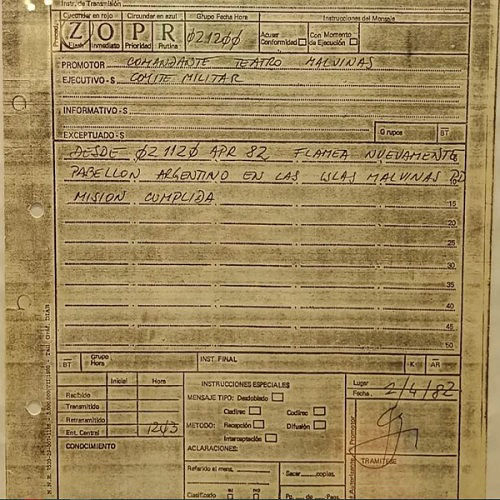 Instr. de Transmisión
Circundar en rojo Circundar en azul Grupo Fecha Hora Instrucciones del Mensaje
Z O P R
Flash Inmediato Prioridad Rutina
Ø212ØØ
Acusar Conformidad Con Momento de Ejecución
PROMOTOR COMANDANTE TEATRO MALVINAS
EJECUTIVO - S COMITE MILITAR
INFORMATIVO - S
EXCEPTUADO - S Grupos BT
DESDE Ø2112Ø APR 82 FLAMEA NUEVAMENTE
PABELLON ARGENTINO EN LAS ISLAS MALVINAS PD
10
MISION CUMPLIDA
15
20
25
30
35
40
45
50
BT Grupo Hora INST. FINAL K AR
Inicial Hora
Recibido
Transmitido
Retransmitido
Ent. Central 1243
CONOCIMIENTO
INSTRUCCIONES ESPECIALES
MENSAJE TIPO: Desdoblado
Codirec Codirec
METODO: Recepción Difusión
Interceptación
ACLARACIONES:
Referido al mens.
Sacar copias.
SI NO
Clasificado
Pp. de Pags.
Lugar
Fecha 2/4/82
Promotor
TRAMITESE